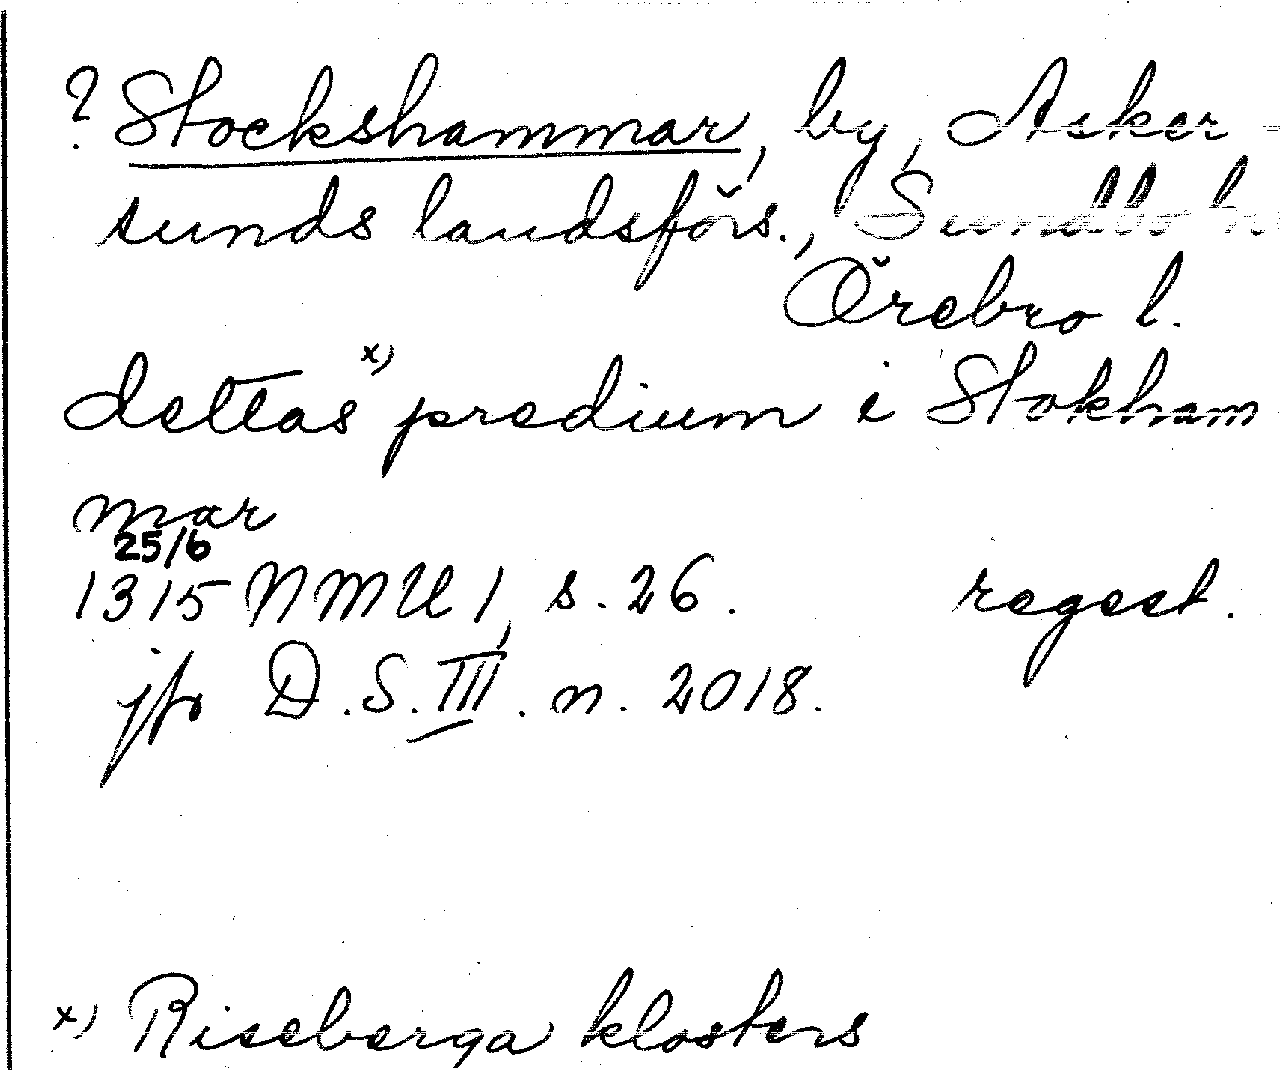 ? Stockshammar, by, Asker-
sunds landsförs., Sundbo h
Örebro l.
dettas x) predium i Stokham
mar
25/6
1315 NMU 1, s. 26. regest.
jfr D.S. III. n. 2018.
x) Riseberga klosters